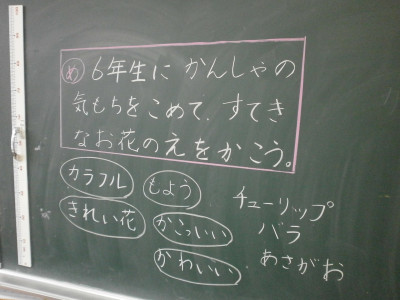 め 6年生に かんしゃの
気もちをこめて、すてき
なお花のえをかこう。
カラフル
もよう
きれい花
かっこいい
かわいい
チューリップ
バラ
あさがお